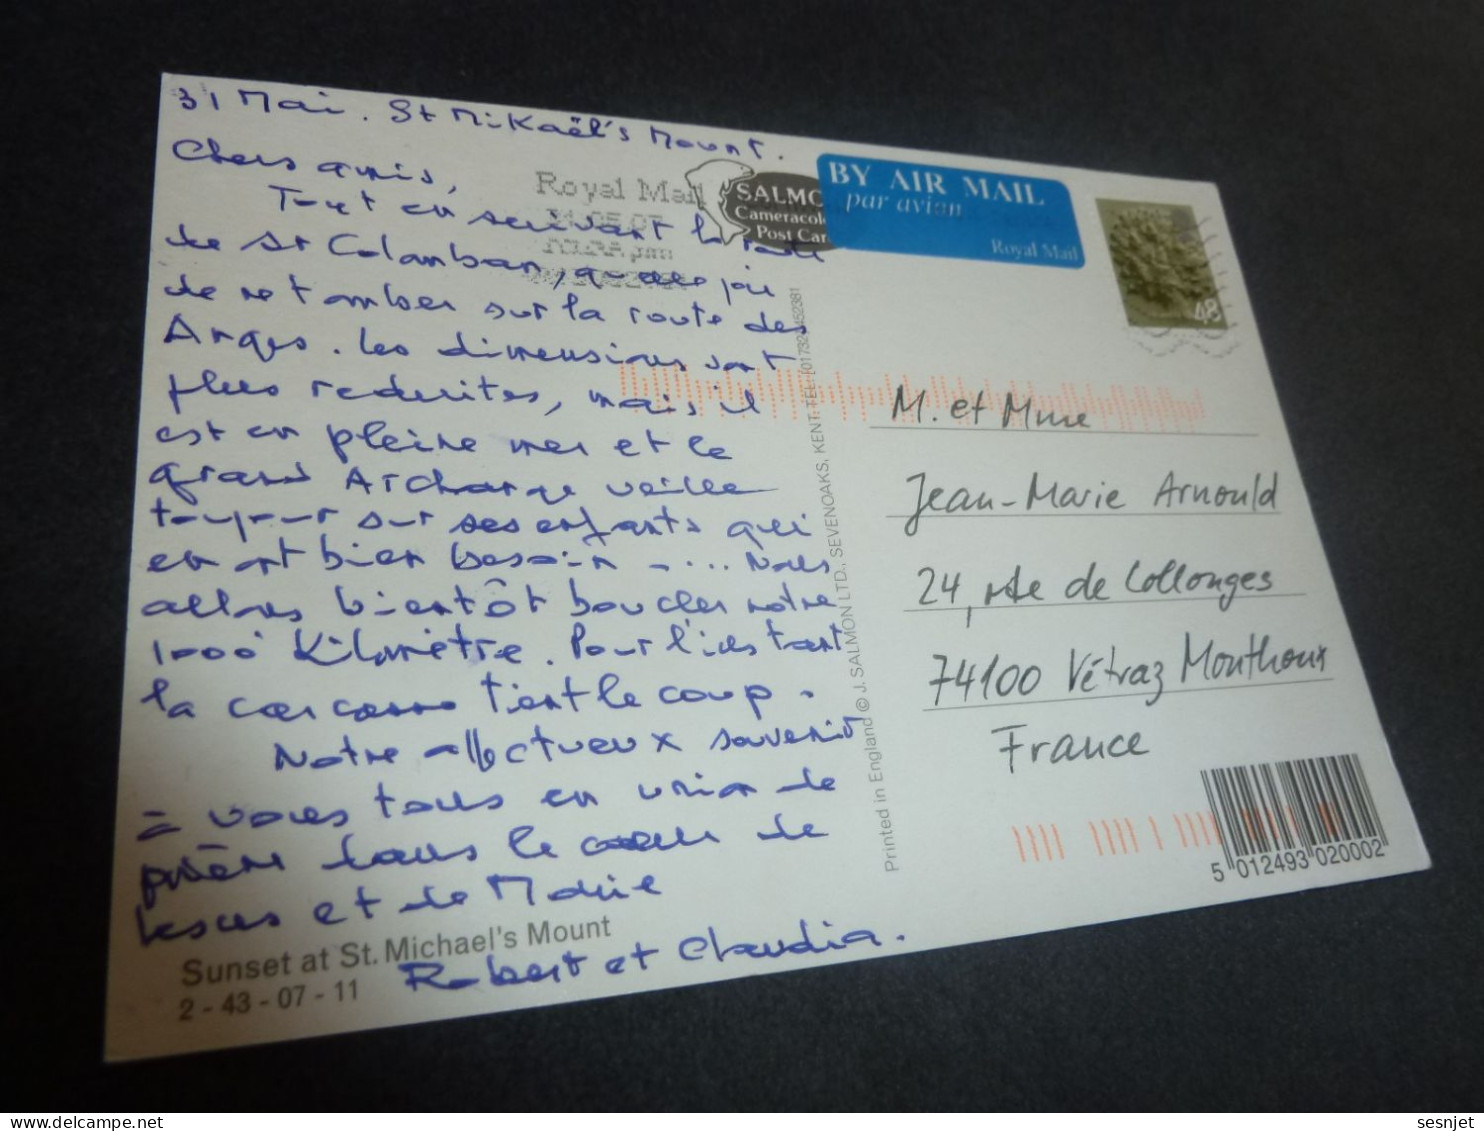 31 Mai. St Mikaël's Mount.
Chers amis,
Tout en suivant la route
de St Colomban, quelle joie
de retomber sur la route des
Anges. Les dimensions sont
plus reduites, mais il
est en pleine mer et le
grand Archange veille
toujours sur ses enfants qui
en ont bien besoin .... Nous
allons bientôt boucler notre
1000è Kilomètre. Pour l'instant
la carcasse tient le coup.
Notre affectueux souvenir
à vous tous en union de
prière dans le cœur de
Jesus et de Marie
Robert et Claudia.
Sunset at St. Michael's Mount
2 - 43 - 07 - 11
Royal Mail
SALMO
Cameracol
Post Car
BY AIR MAIL
par avion
Royal Mail
48
Printed in England © J. SALMON LTD., SEVENOAKS, KENT. TEL: (01732) 452381
M. et Mme
Jean-Marie Arnould
24, rte de Collonges
74100 Vétraz Monthoux
France
5 012493 020002
sesnjet